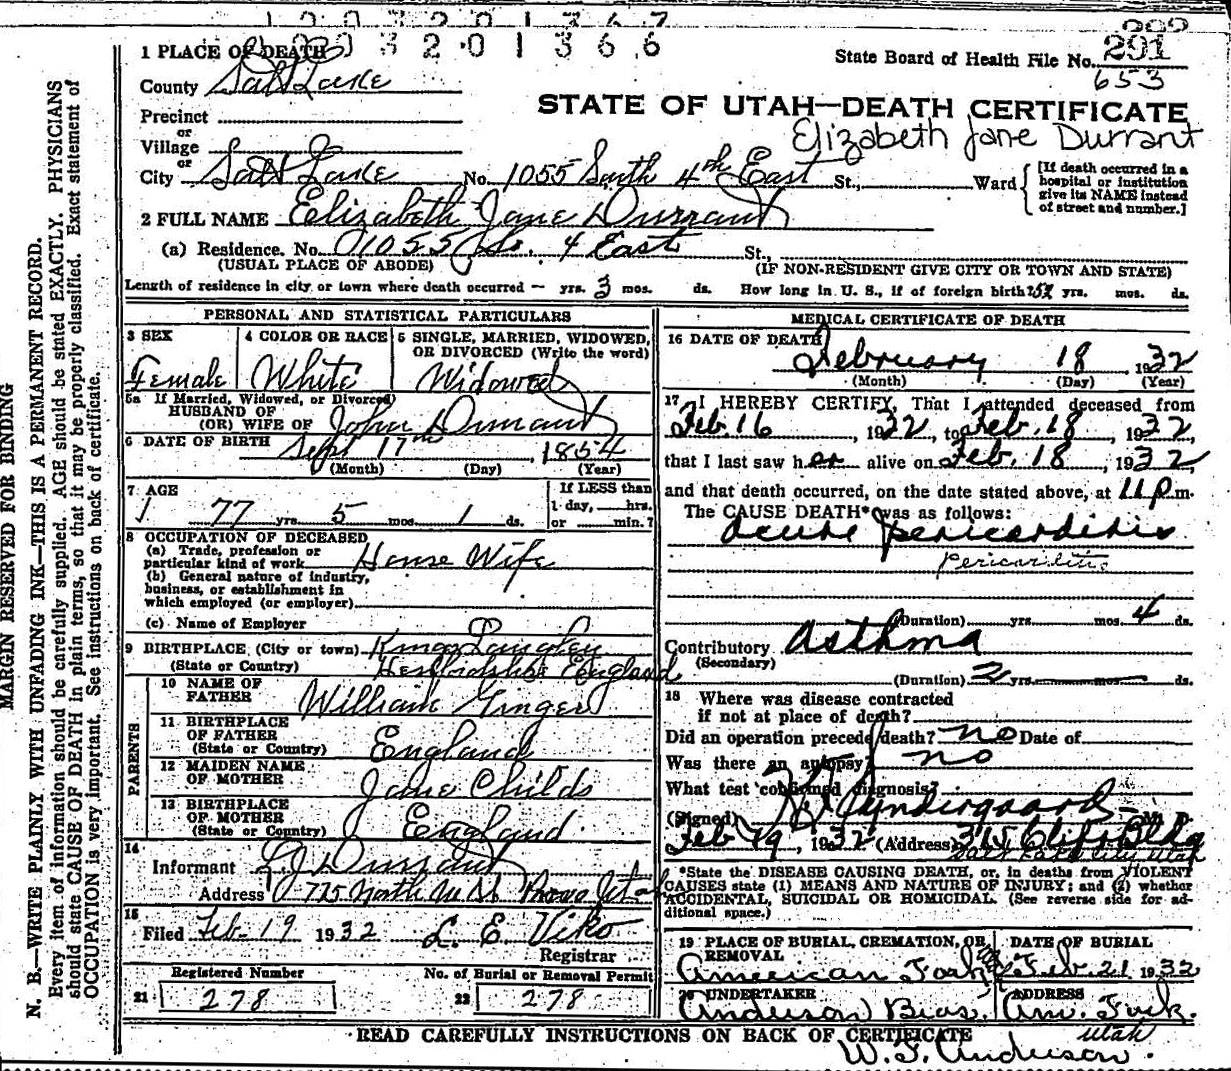 1 0 0 3 2 0 1 3 6 7
0 3 2 0 1 3 6 6
1 PLACE OF DEATH
State Board of Health File No. 291
653
County Salt Lake
STATE OF UTAH—DEATH CERTIFICATE
Precinct
Elizabeth Jane Durrant
or
Village
or
City Salt Lake No. 1055 South 4th East St., Ward
[If death occurred in a hospital or institution give its NAME instead of street and number.]
2 FULL NAME Elizabeth Jane Durrant
(a) Residence. No. 1055 So. 4 East St.,
(USUAL PLACE OF ABODE) (IF NON-RESIDENT GIVE CITY OR TOWN AND STATE)
Length of residence in city or town where death occurred — yrs. 3 mos. ds. How long in U. S., if of foreign birth? yrs. mos. ds.
PERSONAL AND STATISTICAL PARTICULARS
3 SEX 4 COLOR OR RACE 5 SINGLE, MARRIED, WIDOWED, OR DIVORCED (Write the word)
Female White Widowed
5a If Married, Widowed, or Divorced
HUSBAND OF
(OR) WIFE OF John Durrant
6 DATE OF BIRTH Sept 17th 1854
(Month) (Day) (Year)
7 AGE If LESS than
77 yrs. 5 mos. 1 ds. 1 day, hrs.
or min.?
8 OCCUPATION OF DECEASED
(a) Trade, profession or
particular kind of work House Wife
(b) General nature of industry,
business, or establishment in
which employed (or employer)
(c) Name of Employer
9 BIRTHPLACE (City or town) Kings Langley
(State or Country) Hertfordshire England
PARENTS
10 NAME OF FATHER William Ginger
11 BIRTHPLACE OF FATHER (State or Country) England
12 MAIDEN NAME OF MOTHER Jane Childs
13 BIRTHPLACE OF MOTHER (State or Country) England
14
Informant L J Durrant
Address 775 North Provo Utah
15
Filed Feb-19 1932 L. E. Viko
Registrar
Registered Number No. of Burial or Removal Permit
21 278 22 278
MEDICAL CERTIFICATE OF DEATH
16 DATE OF DEATH
February 18, 1932
(Month) (Day) (Year)
17 I HEREBY CERTIFY, That I attended deceased from
Feb. 16, 1932, to Feb. 18, 1932,
that I last saw her alive on Feb. 18, 1932,
and that death occurred, on the date stated above, at 11 P. m.
The CAUSE DEATH* was as follows:
acute pericarditis
Pericarditis
(Duration) yrs. mos. 4 ds.
Contributory Asthma
(Secondary)
(Duration) 2 yrs. mos. ds.
18 Where was disease contracted
if not at place of death?
Did an operation precede death? no Date of
Was there an autopsy? no
What test confirmed diagnosis?
(Signed) Syndergaard M. D.
Feb 19, 1932 (Address) 315 Clift Bldg
Salt Lake City Utah
*State the DISEASE CAUSING DEATH, or, in deaths from VIOLENT
CAUSES state (1) MEANS AND NATURE OF INJURY; and (2) whether
ACCIDENTAL, SUICIDAL OR HOMICIDAL. (See reverse side for ad-
ditional space.)
19 PLACE OF BURIAL, CREMATION, OR REMOVAL DATE OF BURIAL
American Fork Feb. 21 1932
20 UNDERTAKER ADDRESS
Anderson Bros. Am. Fork.
Utah
READ CAREFULLY INSTRUCTIONS ON BACK OF CERTIFICATE
W. F. Anderson.
MARGIN RESERVED FOR BINDING
N. B.—WRITE PLAINLY WITH UNFADING INK—THIS IS A PERMANENT RECORD.
Every item of information should be carefully supplied. AGE should be stated EXACTLY. PHYSICIANS
should state CAUSE OF DEATH in plain terms, so that it may be properly classified. Exact statement of
OCCUPATION is very important. See instructions on back of certificate.